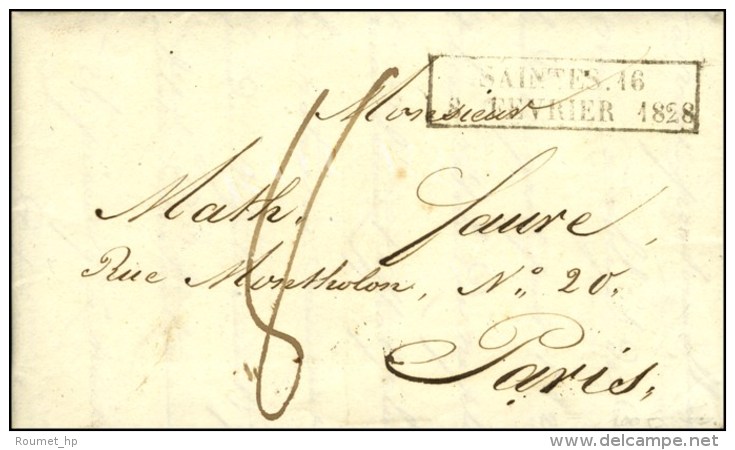 SAINTES.16
8. FEVRIER 1828
Monsieur
Math. Faure,
Rue Montholon, No. 20.
Paris.
8
Roumet_hp
delcampe.net